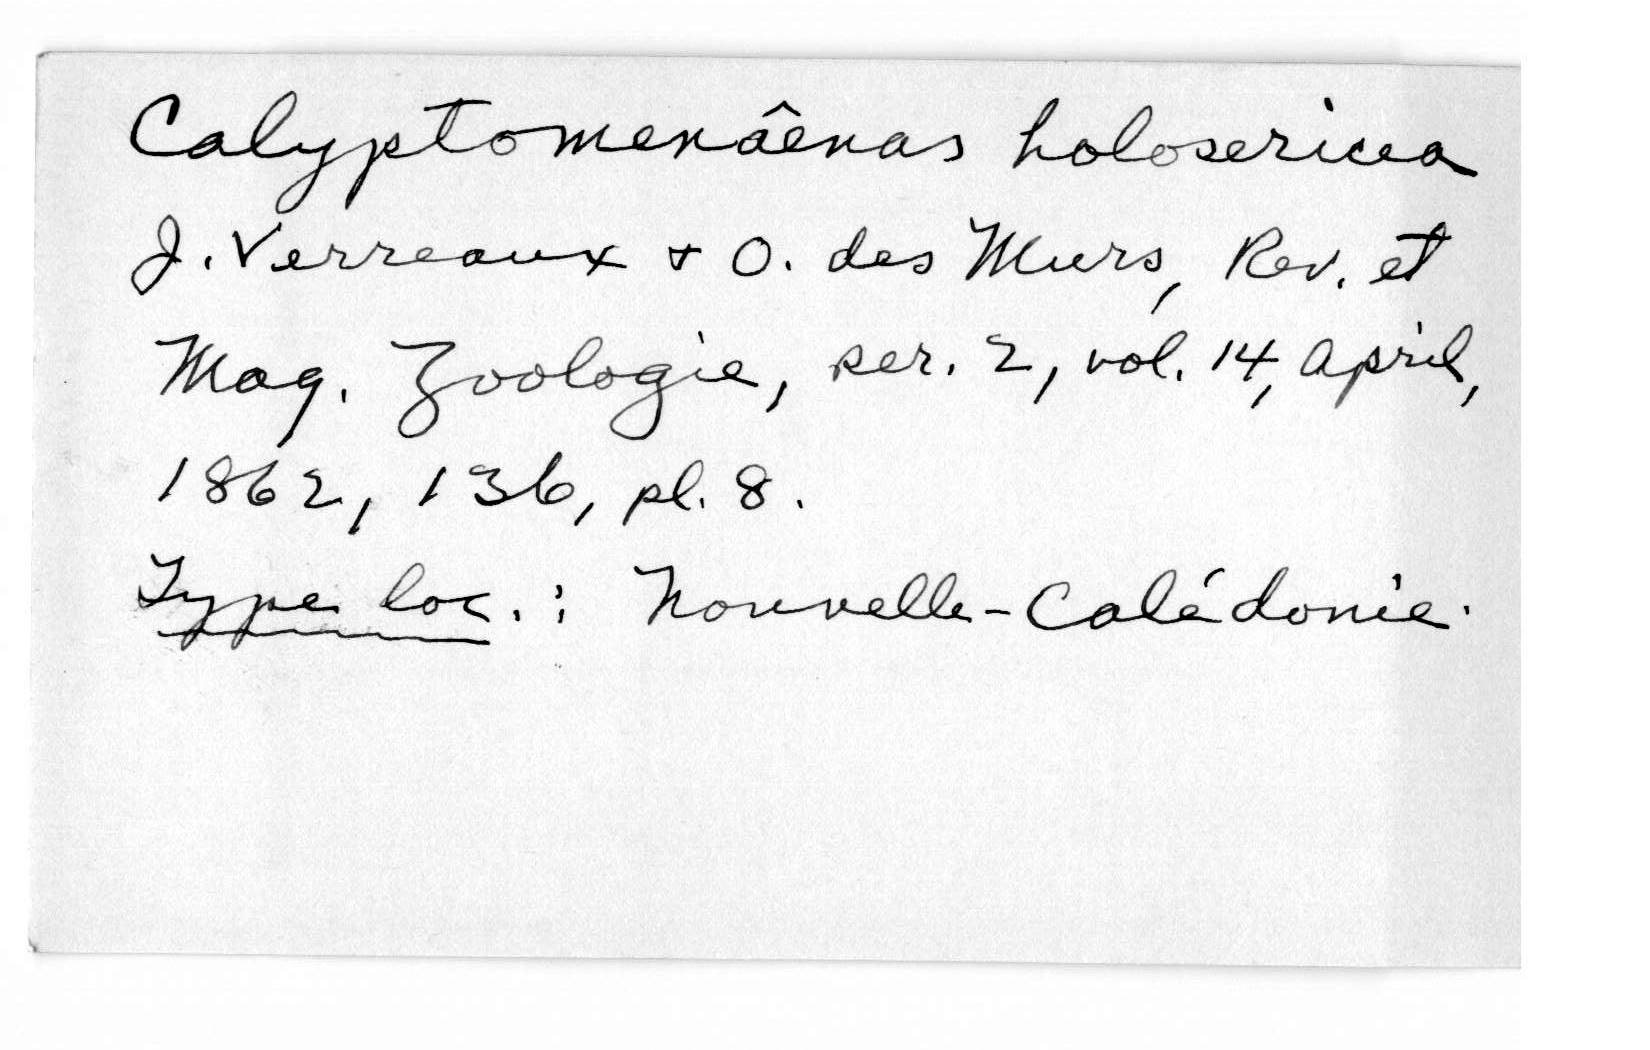 Calyptomenâenas holosericea
J. Verreaux & O. des Murs, Rev. et
Mag. Zoologie, ser. 2, vol. 14, April,
1862, 136, pl. 8.
Type loc.: Nouvelle-Calédonie.